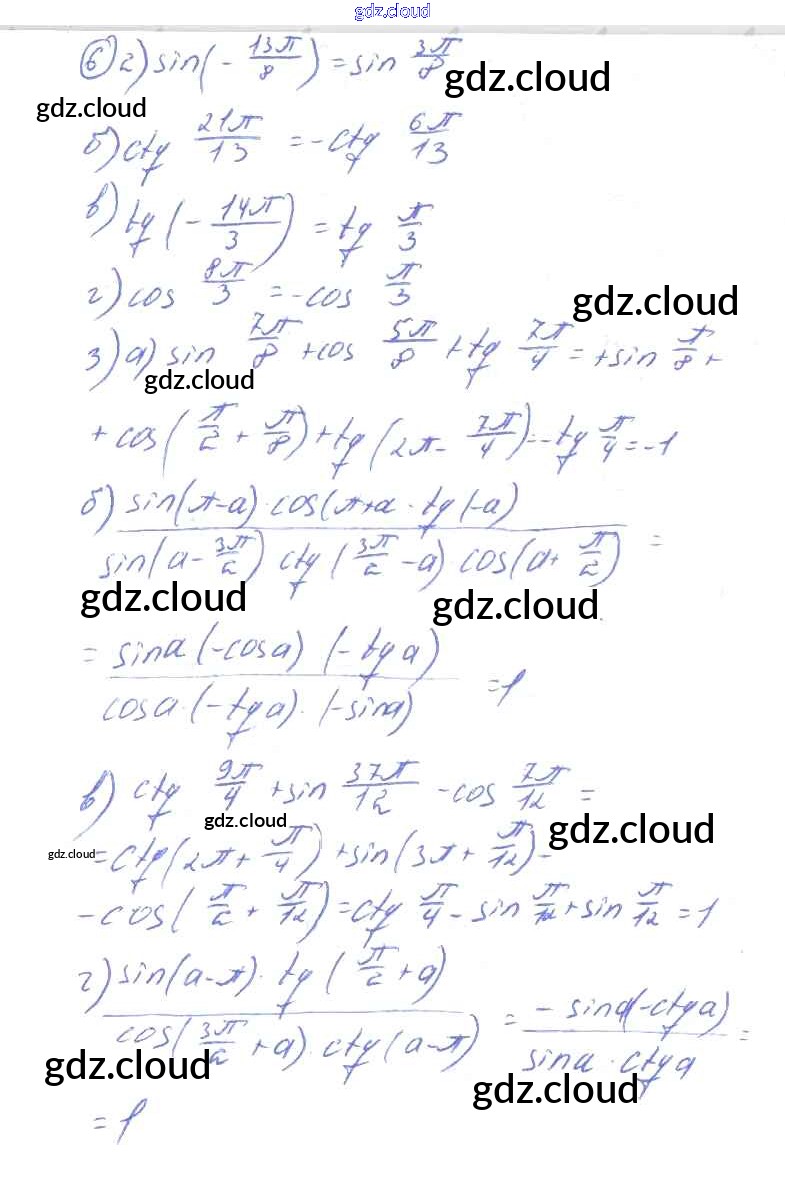 gdz.cloud
⑥ 2) sin(- 13π/8) = sin 3π/8
gdz.cloud
gdz.cloud
б) ctg 21π/13 = -ctg 6π/13
в) tg (- 14π/3) = tg π/3
г) cos 8π/3 = -cos π/3
gdz.cloud
3) а) sin 7π/8 + cos 5π/8 + tg 7π/4 = + sin π/8 +
gdz.cloud
+ cos(π/2 + π/8) + tg (2π - 7π/4) = -tg π/4 = -1
б) sin(π-a) · cos(π+a · tg(-a)
sin(a - 3π/2) ctg (3π/2 - a) · cos(a + π/2) =
gdz.cloud
gdz.cloud
= sina (-cosa) (-tga)
cosa · (-tga) · (-sina) = 1
в) ctg 9π/4 + sin 37π/12 - cos 7π/12 =
gdz.cloud
gdz.cloud
gdz.cloud
= ctg(2π + π/4) + sin(3π + π/12) -
- cos(π/2 + π/12) = ctg π/4 - sin π/12 + sin π/12 = 1
г) sin(a-π) · tg (π/2 + a)
cos(3π/2 + a) · ctg (a-π) = - sina(-ctga) / sina · ctga =
gdz.cloud
gdz.cloud
= 1